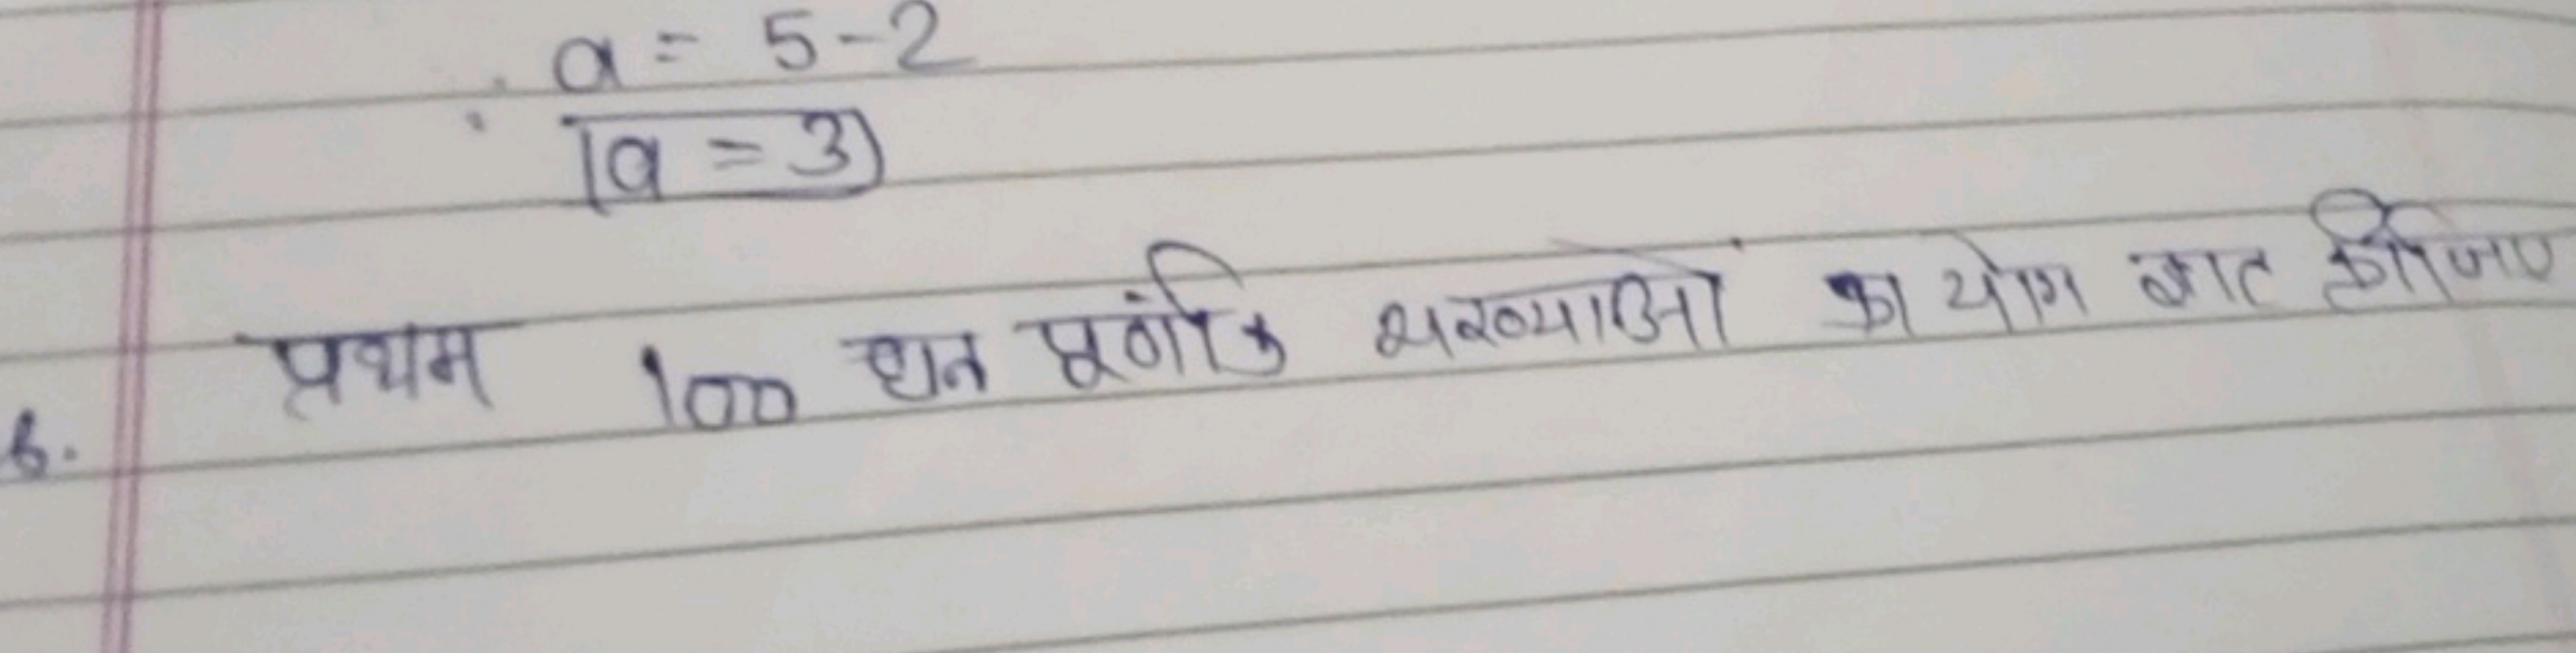 a = 5-2
a = 3
6. प्रथम 100 धन पूर्णांक संख्याओं का योग ज्ञात कीजिए